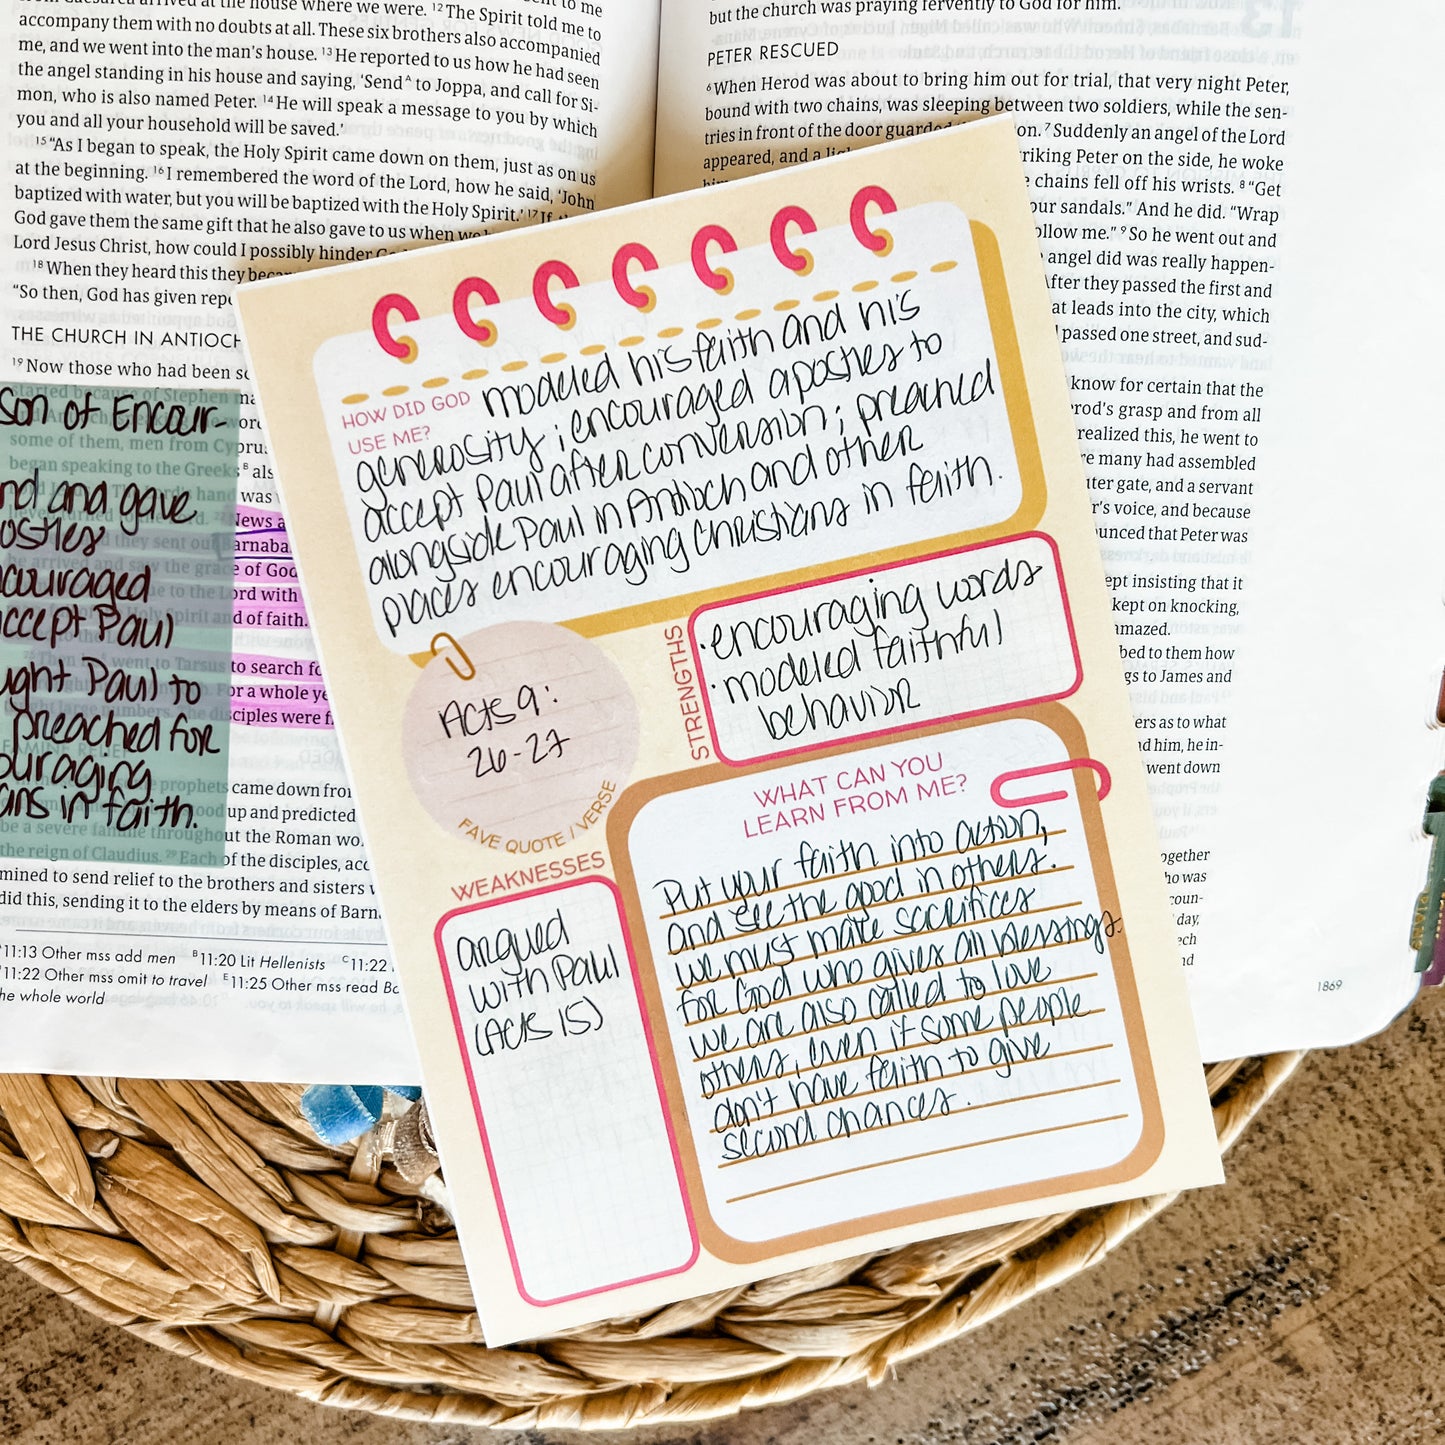 accompany them with no doubts at all. These six brothers also accompanied
me, and we went into the man's house. 13 He reported to us how he had seen
the angel standing in his house and saying, 'Send A to Joppa, and call for Si-
mon, who is also named Peter. 14 He will speak a message to you by which
you and all your household will be saved.'
15 "As I began to speak, the Holy Spirit came down on them, just as on us
at the beginning. 16 I remembered the word of the Lord, how he said, 'John
baptized with water, but you will be baptized with the Holy Spirit.' 17 If
God gave them the same gift that he also gave to us when we
Lord Jesus Christ, how could I possibly hinder
18 When they heard this they
"So then, God has given
THE CHURCH IN ANTIOCH
19 Now those who had been
started because of Stephen
some of them, men from Cyprus
began speaking to the Greeks B
was
News
they sent out Barnaba
arrived and saw the grace of God
Lord with
Holy Spirit and of faith.
went to Tarsus to search
For a whole
disciples were
prophets came down from
up and predicted
be a severe famine throughout the Roman
the reign of Claudius. 29 Each of the disciples,
mined to send relief to the brothers and sisters
did this, sending it to the elders by means of Barn
A 11:13 Other mss add men B 11:20 Lit Hellenists C 11:22
11:22 Other mss omit to travel E 11:25 Other mss read
the whole world
son of Encour-
and gave
encouraged
accept Paul
Paul to
preached for
in faith.
but the church was praying fervently to God for him.
PETER RESCUED
6 When Herod was about to bring him out for trial, that very night Peter,
bound with two chains, was sleeping between two soldiers, while the sen-
tries in front of the door guarded
7 Suddenly an angel of the Lord
appeared, and a
striking Peter on the side, he woke
chains fell off his wrists. 8 "Get
your sandals." And he did. "Wrap
follow me." 9 So he went out and
angel did was really happen-
After they passed the first and
that leads into the city, which
passed one street, and sud-
know for certain that the
Herod's grasp and from all
realized this, he went to
many had assembled
outer gate, and a servant
Peter's voice, and because
announced that Peter was
kept insisting that it
kept on knocking,
amazed.
to them how
to James and
as to what
him, he in-
went down
1869
HOW DID GOD
USE ME?
modeled his faith and his
generosity; encouraged apostles to
accept Paul after conversion; preached
alongside Paul in Antioch and other
places encouraging Christians in faith.
STRENGTHS
· encouraging words
· modeled faithful
behavior
Acts 9:
26-27
FAVE QUOTE / VERSE
WEAKNESSES
argued
with Paul
(Acts 15)
WHAT CAN YOU
LEARN FROM ME?
Put your faith into action,
and see the good in others.
we must make sacrifices
for God who gives all blessings.
we are also called to love
others, even if some people
don't have faith to give
second chances.